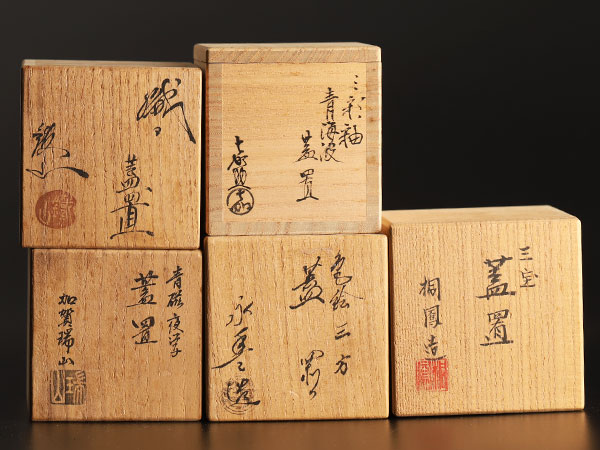 蓋置
三彩釉
青海波
蓋置
青磁夜学
蓋置
加賀瑞山
色絵三方
蓋置
永楽造
三宝
蓋置
桐鳳造